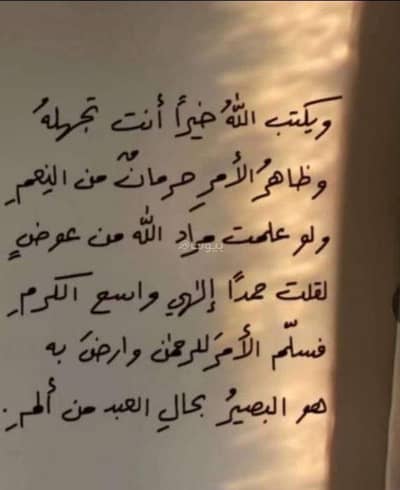 ويكتب اللهُ خيراً أنت تجهلهُ
وظاهرُ الأمرِ حرمانٌ من النِعمِ
ولو علمت مرادَ الله من عوضٍ
لقلت حمدًا إلهي واسع الكرمِ
فسلّم الأمرَ للرحمٰن وارضَ به
هو البصيرُ بحالِ العبد من ألمِ.